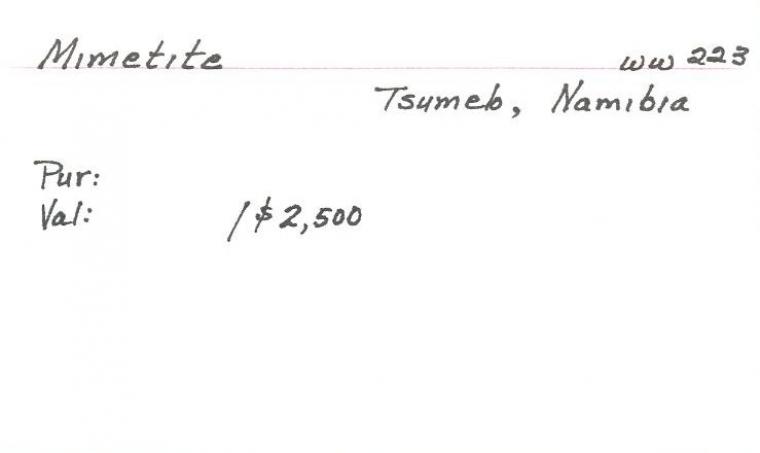 Mimetite ww 223
Tsumeb, Namibia
Pur:
Val: /$2,500